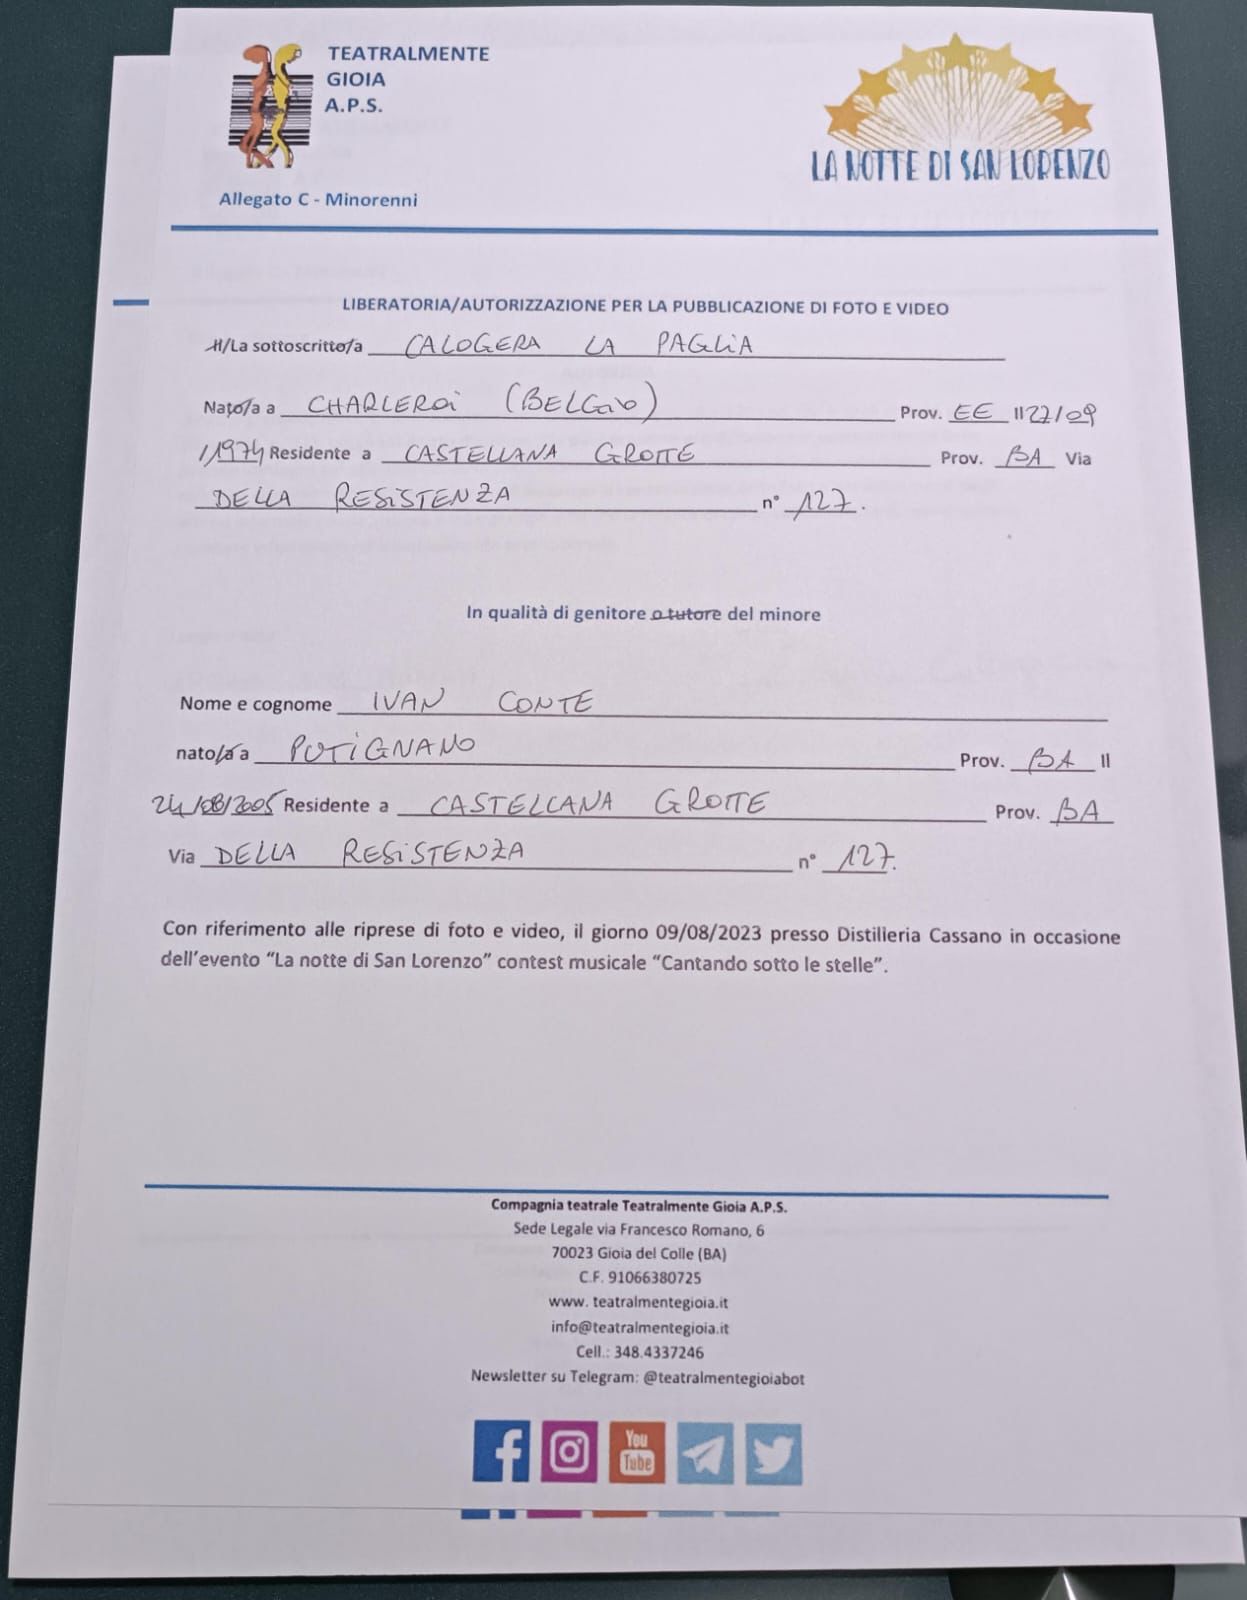 TEATRALMENTE
GIOIA
A.P.S.
LA NOTTE DI SAN LORENZO
Allegato C - Minorenni
LIBERATORIA/AUTORIZZAZIONE PER LA PUBBLICAZIONE DI FOTO E VIDEO
Il/La sottoscritto/a CALOGERA LA PAGLIA
Nato/a a CHARLEROI (BELGIO) Prov. EE Il 27/09
/1974 Residente a CASTELLANA GROTTE Prov. BA Via
DELLA RESISTENZA n° 127.
In qualità di genitore o tutore del minore
Nome e cognome IVAN CONTE
nato/a a PUTIGNANO Prov. BA Il
24/08/2005 Residente a CASTELLANA GROTTE Prov. BA
Via DELLA RESISTENZA n° 127.
Con riferimento alle riprese di foto e video, il giorno 09/08/2023 presso Distilleria Cassano in occasione
dell'evento “La notte di San Lorenzo” contest musicale “Cantando sotto le stelle”.
Compagnia teatrale Teatralmente Gioia A.P.S.
Sede Legale via Francesco Romano, 6
70023 Gioia del Colle (BA)
C.F. 91066380725
www. teatralmentegioia.it
info@teatralmentegioia.it
Cell.: 348.4337246
Newsletter su Telegram: @teatralmentegioiabot
You
Tube